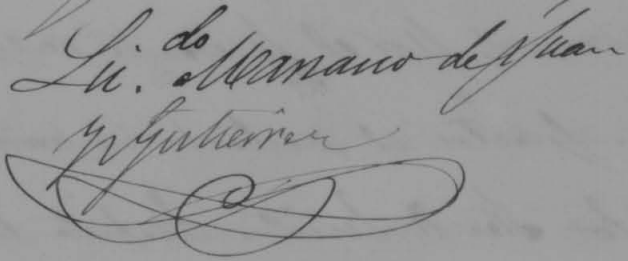 Li.do Mariano de Juan
y Gutierrez